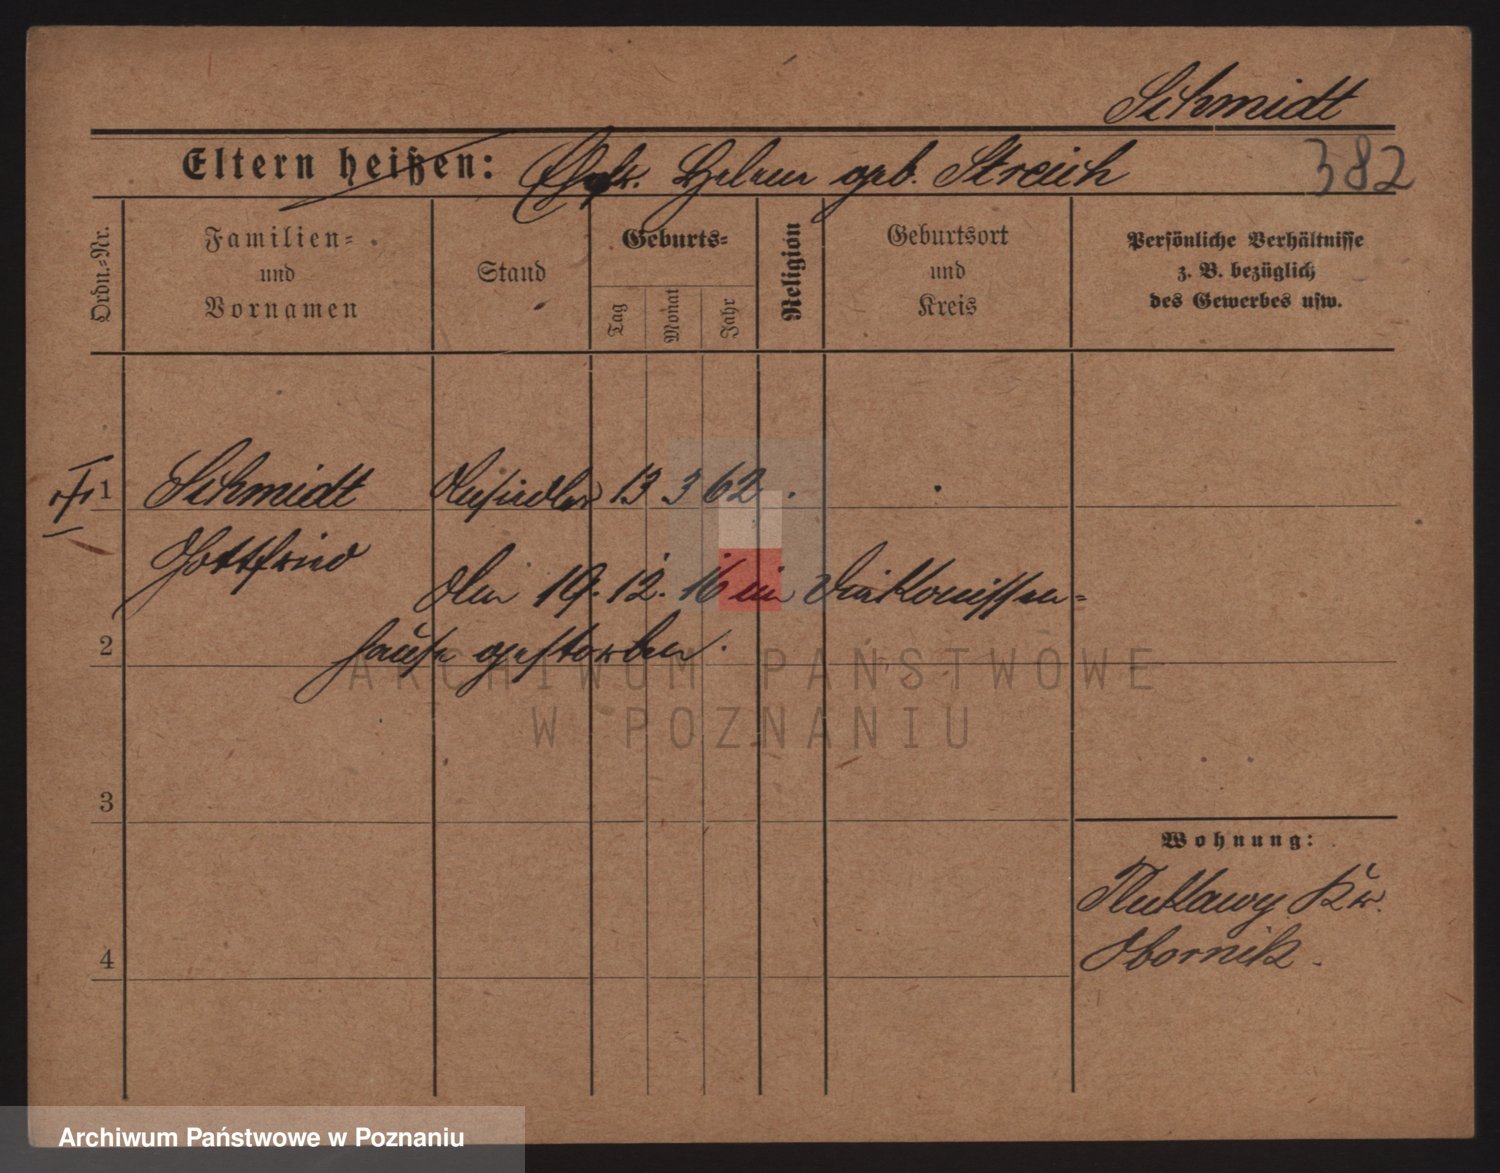 Schmidt
Eltern heißen: Ehefr. Helene geb. Streich
382
Ordn.-Nr.
Familien-
und
Vornamen
Stand
Geburts-
Tag
Monat
Jahr
Religion
Geburtsort
und
Kreis
Persönliche Verhältnisse
z. B. bezüglich
des Gewerbes usw.
1 Schmidt Ansiedler 13 3 62
Gottfried
Am 19. 12. 16 im Diakonissen-
2
hause gestorben.
ARCHIWUM PAŃSTWOWE
W POZNANIU
3
Wohnung:
Kr.
4
Obornik.
Archiwum Państwowe w Poznaniu